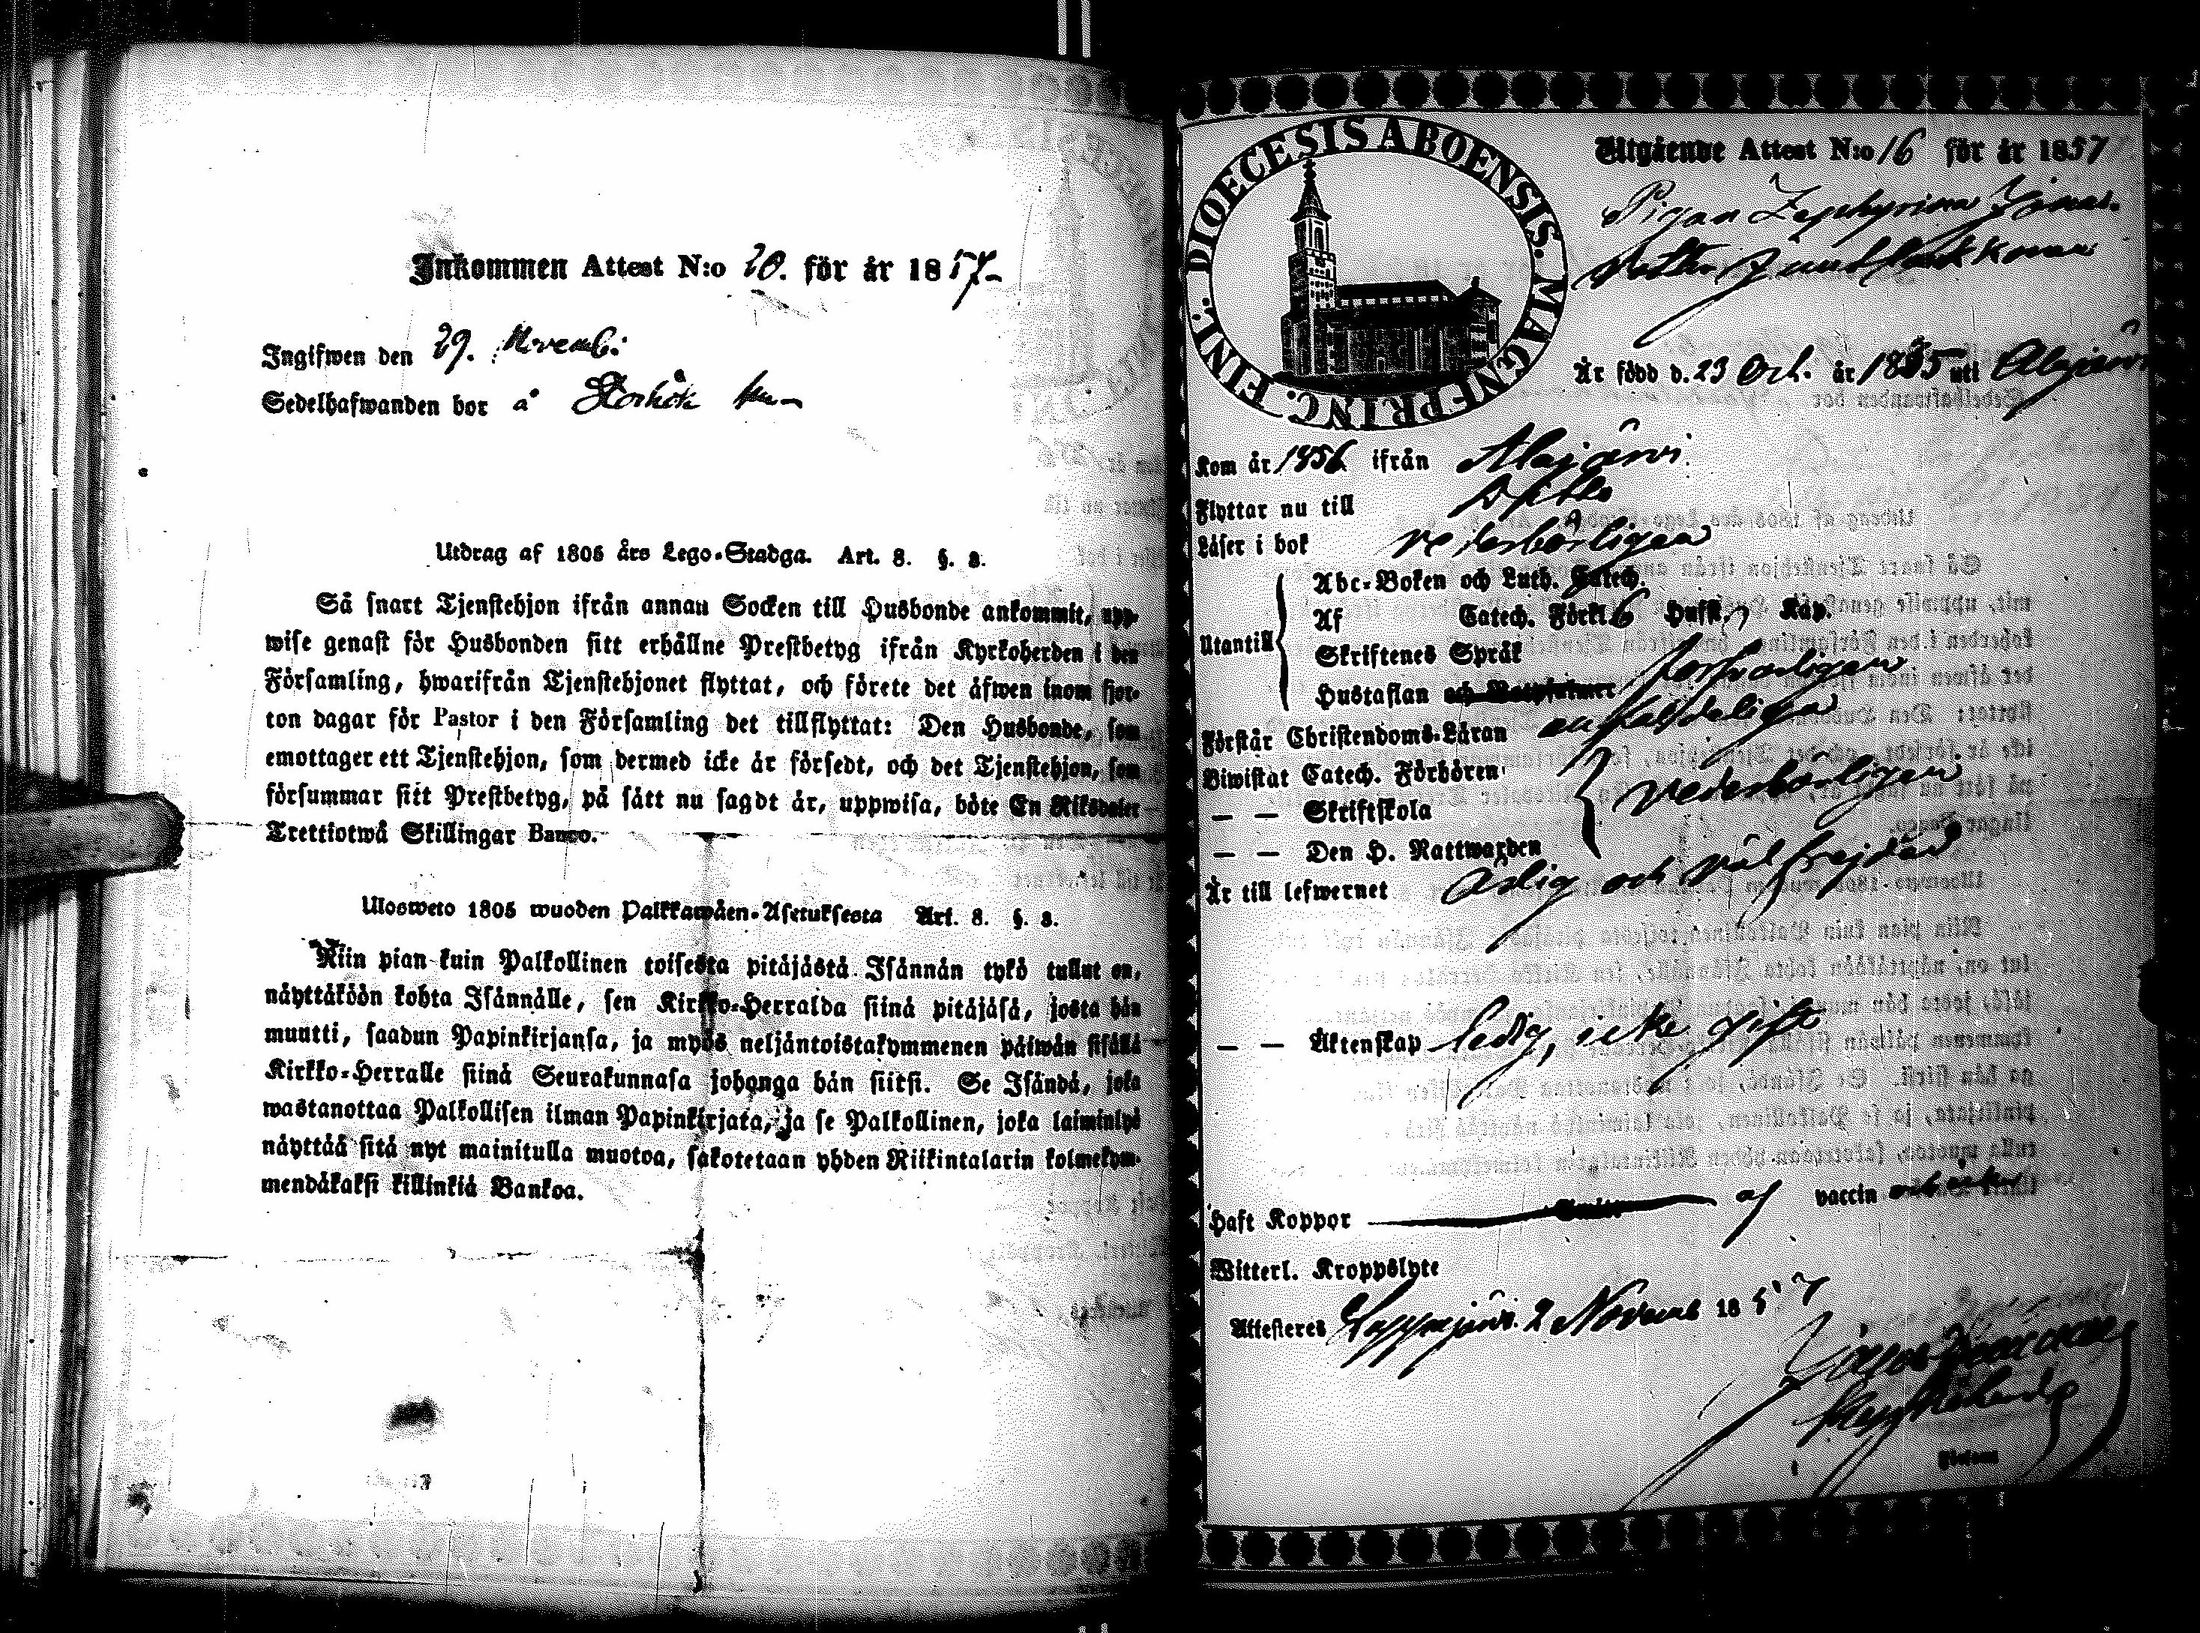 Inkommen Attest N:o 20. för år 1857
Ingifwen den 29. Novemb:
Sedelhafwanden bor å
Utdrag af 1805 års Lego-Stadga. Art. 8. §. 3.
Så snart Tjenstehjon ifrån annan Socken till Husbonde ankommit, upp-
wise genast för Husbonden sitt erhållne Prestbetyg ifrån Kyrkoherden i den
Församling, hwarifrån Tjenstehjonet flyttat, och förete det äfwen inom fjor-
ton dagar för Pastor i den Församling det tillflyttat: Den Husbonde, som
emottager ett Tjenstehjon, som dermed icke är försedt, och det Tjenstehjon, som
försummar sitt Prestbetyg, på sätt nu sagdt är, uppwisa, böte En Riksdaler
Trettiotwå Skillingar Banco.
Ulosweto 1805 wuoden Palkkawäen-Asetuksesta Art. 8. §. 3.
Niin pian kuin Palkollinen toisesta pitäjästä Isännän tykö tullut on,
näyttäköön kohta Isännälle, sen Kirkko-Herralda siinä pitäjäsä, josta hän
muutti, saadun Papinkirjansa, ja myös neljäntoistakymmenen päiwän sisällä
Kirkko-Herralle siinä Seurakunnasa johonga hän siitsi. Se Isändä, joka
wastanottaa Palkollisen ilman Papinkirjata, ja se Palkollinen, joka laiminlyö
näyttää sitä nyt mainitulla muotoa, sakotetaan yhden Riikintalarin kolmekym-
mendäkaksi killinkiä Bankoa.
DIOECESIS ABOENSIS. MAGNI PRINC. FINL.
Utgående Attest N:o 16 för år 1857
Pigan Zephyrina Jönas-
Är född d. 23 Oct. år 1835 uti Alajärvi
Kom år 1856 ifrån Alajärvi.
Flyttar nu till
Läser i bok vederbörligen
Utantill
Abc-Boken och Luth. Catech.
Af Catech. Förkl. 6 Hufst. Kap.
Skriftenes Språk
Hustaflan och Bottpsalmer försvarligen
Förstår Christendoms-Läran enfaldeligen
Biwistat Catech. Förhören
— — Skriftskola vederbörligen
— — Den H. Nattwarden
Är till lefwernet ärlig och välfrejdad
— — Äktenskap ledig, icke gift
Haft Koppor af vaccin
Witterl. Kroppslyte
Attesteres Lappajärvi. 2 Novemb 1857